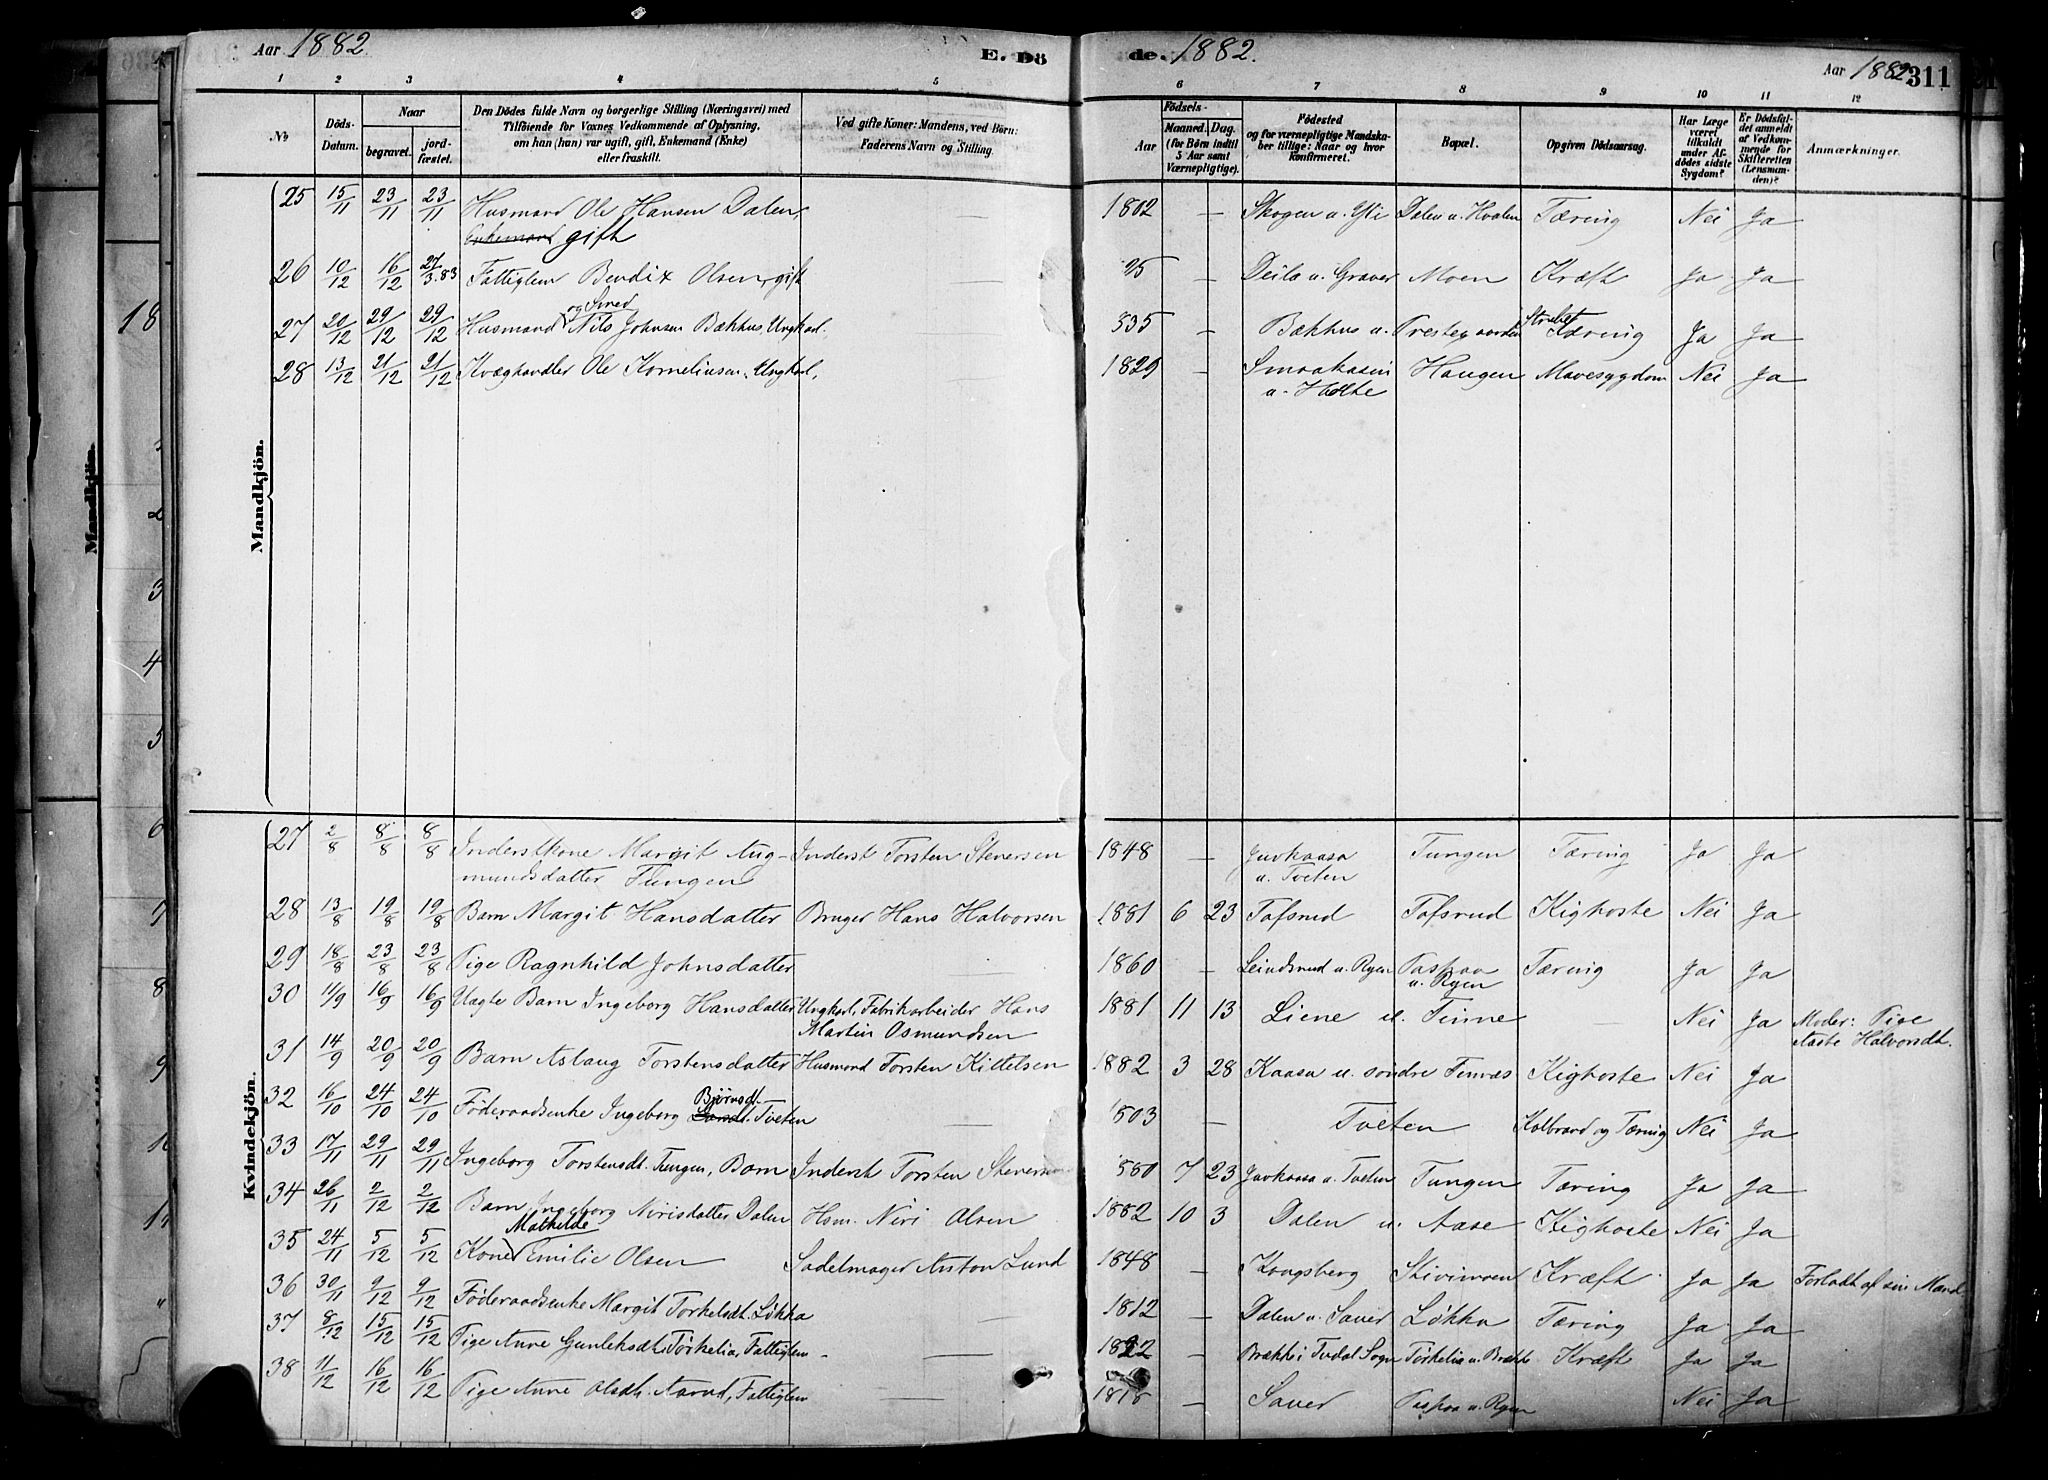 Aar 1882. E. Dö
1 2 3 4 5
Naar
No Döds-Datum. begravet. jord-fæstet.
Den Dödes fulde Navn og borgerlige Stilling (Næringsvei) med
Tilföiende for Voxnes Vedkommende af Oplysning,
om han (hun) var ugift, gift, Enkemand (Enke)
eller fraskilt.
Ved gifte Koner: Mandens, ved Börn:
Faderens Navn og Stilling.
de. 1882. Aar 1882 311
6 7 8 9 10 11 12
Födsels-
Aar Maaned. Dag.
(for Börn indtil
5 Aar samt
Værnepligtige).
Födested
og for værnepligtige Mandska-
ber tillige: Naar og hvor
konfirmeret.
Bopæl.
Opgiven Dödsaarsag.
Har Læge
været
tilkaldt
under Af-
dödes sidste
Sygdom?
Er Dödsfal-
det anmeldt
af Vedkom-
mende for
Skifteretten
(Lensman-
den)?
Anmærkninger.
Mandkjön.
25 15/11 23/11 23/11 Husmand Ole Hansen Dalen, — 1802 — Skogen u. Yli Dalen u. Hvalen Tæring Nei Ja
Enkemand gift
26 10/12 16/12 27/3.83 Fattiglem Bendix Olsen, gift — 25 — Deila u. Graver Moen Kræft Ja Ja
og Smed
27 20/12 29/12 29/12 Husmand Nils Johnsen Bækhus, Ungkarl. 1835 — Bækhus u. Prestegaarden Strubetæring Ja Ja
28 13/12 21/12 21/12 Kvæghandler Ole Korneliusen, Ungkarl, 1829 Haugen Mavesygdom Nei Ja
u. Holte
Kvindekjön.
27 2/8 8/8 8/8 Inderstkone Margit Aug- Inderst Torsten Stenersen 1848 — Juvkaasa Tungen Tæring Ja Ja
mundsdatter Tungen u. Tveten
28 13/8 19/8 19/8 Barn Margit Hansdatter Bruger Hans Halvorsen 1881 6 23 Tofsrud Tofsrud Kighoste Nei Ja
29 18/8 23/8 23/8 Pige Ragnhild Johnsdatter — 1860 — Leindsrud u. Ryen Taspaa u. Ryen Tæring Ja Ja
30 11/9 16/9 16/9 Uægte Barn Ingeborg Hansdatter Ungkarl, Fabrikarbeider Hans 1881 11 13 Liene u. Tinne — Nei Ja Moder: Pige
Martin Osmundsen Aaste Halvorsdt.
31 14/9 20/9 20/9 Barn Aslaug Torstensdatter Husmand Torsten Kittelsen 1882 3 28 Kaasa u. söndre Tinnæs Kighoste Nei Ja
Björnsdt.
32 16/10 24/10 24/10 Föderaadsenke Ingeborg Tveten — 1803 — Tveten Koldbrand og Tæring Nei Ja
33 17/11 29/11 29/11 Ingeborg Torstensdt. Tungen, Barn Inderst Torsten Stenersen 1880 7 23 Juvkaasa u. Tveten Tungen Tæring Ja Ja
34 26/11 2/12 2/12 Barn Ingeborg Nirisdatter Dalen Hsm. Niri Olsen 1882 10 3 Dalen u. Aase Kighoste Nei Ja
Mathilde
35 24/11 5/12 5/12 Kone Emilie Olsen Sadelmager Anton Lund 1848 — Kongsberg Skivimoen Kræft Ja Ja Forladt af sin Mand
36 30/11 9/12 9/12 Föderaadsenke Margit Torkelsdt. Løkka — 1812 — Dalen u. Sauer Løkka Tæring Ja Ja
37 8/12 15/12 15/12 Pige Anne Gunleksdt. Törkelia, Fattiglem — 1822 — Brække i Tudal Sogn Törkelia u. Brække Kræft Ja Ja
38 11/12 16/12 16/12 Pige Anne Olsdt. Aarud, Fattiglem — 1818 — Sauer Taspaa u. Ryen Nei Ja
Mandkjön.
18
2
3
4
5
6
7
8
9
10
11